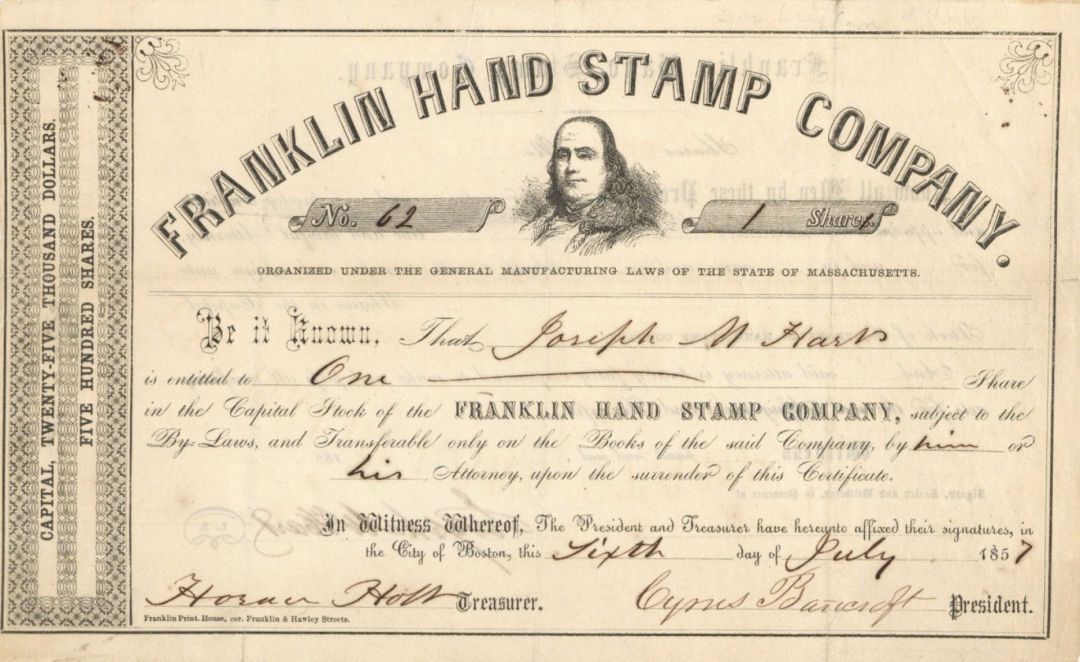 FRANKLIN HAND STAMP COMPANY.
No. 62
1 Shares
ORGANIZED UNDER THE GENERAL MANUFACTURING LAWS OF THE STATE OF MASSACHUSETTS.
CAPITAL, TWENTY-FIVE THOUSAND DOLLARS.
FIVE HUNDRED SHARES.
Be it Known, That Joseph M Hart
is entitled to One Share
in the Capital Stock of the FRANKLIN HAND STAMP COMPANY, subject to the
By-Laws, and Transferable only on the Books of the said Company, by him or
his Attorney, upon the surrender of this Certificate.
In Witness Whereof, The President and Treasurer have hereunto affixed their signatures, in
the City of Boston, this Sixth day of July 1857
Horace Holt Treasurer. Cyrus Bancroft President.
Franklin Print. House, cor. Franklin & Hawley Streets.